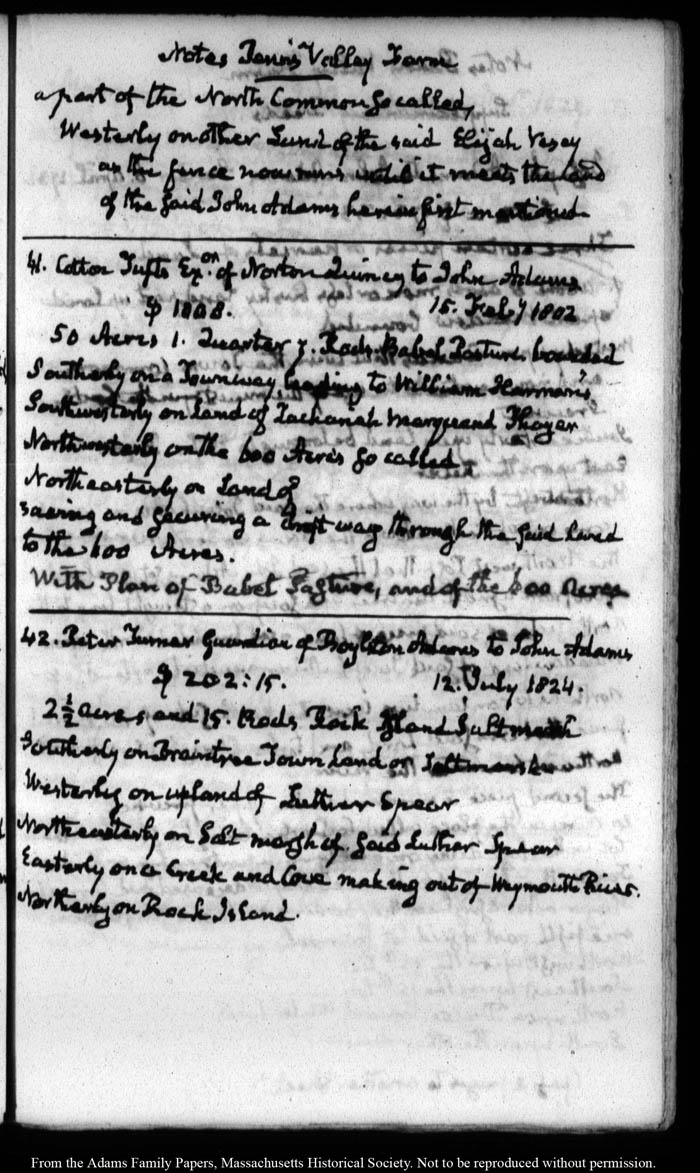 Notes Penn's Valley Farm
a part of the North Common so called,
Westerly on other Land of the said Elijah Vesey
as the fence now runs until it meets the land
of the said John Adams herein first mentioned
41. Cotton Tufts Exon. of Norton Quincy to John Adams
$ 1808. 15. Feby 1802
50 Acres 1. Quarter 7. Rods Babel Pasture. bounded
Southerly on a Townway leading to William Harman's
Southwesterly on Land of Zachariah Marquand Thayer
Northwesterly on the 600 Acres so called
Northeasterly on Land of
saving and securing a drift way through the said land
to the 600 Acres.
With Plan of Babel Pasture, and of the 600 Acres
42. Peter Turner Guardian of Boylston Adams to John Adams
$ 202:15. 12. July 1824.
2 1/2 acres and 15. Rods Rock Island Saltmarsh
Southerly on Braintree Town Land or Saltmarsh
Westerly on upland of Luther Spear
Northeasterly on Salt marsh of said Luther Spear
Easterly on a Creek and Cove making out of Weymouth River.
Northerly on Rock Island.
From the Adams Family Papers, Massachusetts Historical Society. Not to be reproduced without permission.